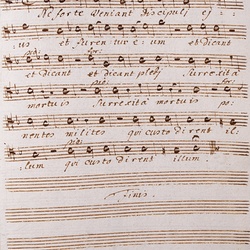 Ne forte veniant discipuli ej-
us et furentur eum et dicant
et dicant et dicant plebi surrexit a
mortuis surrexit a mortuis po-
nentes milites qui custodirent il-
lum qui custodirent illum.
Finis.